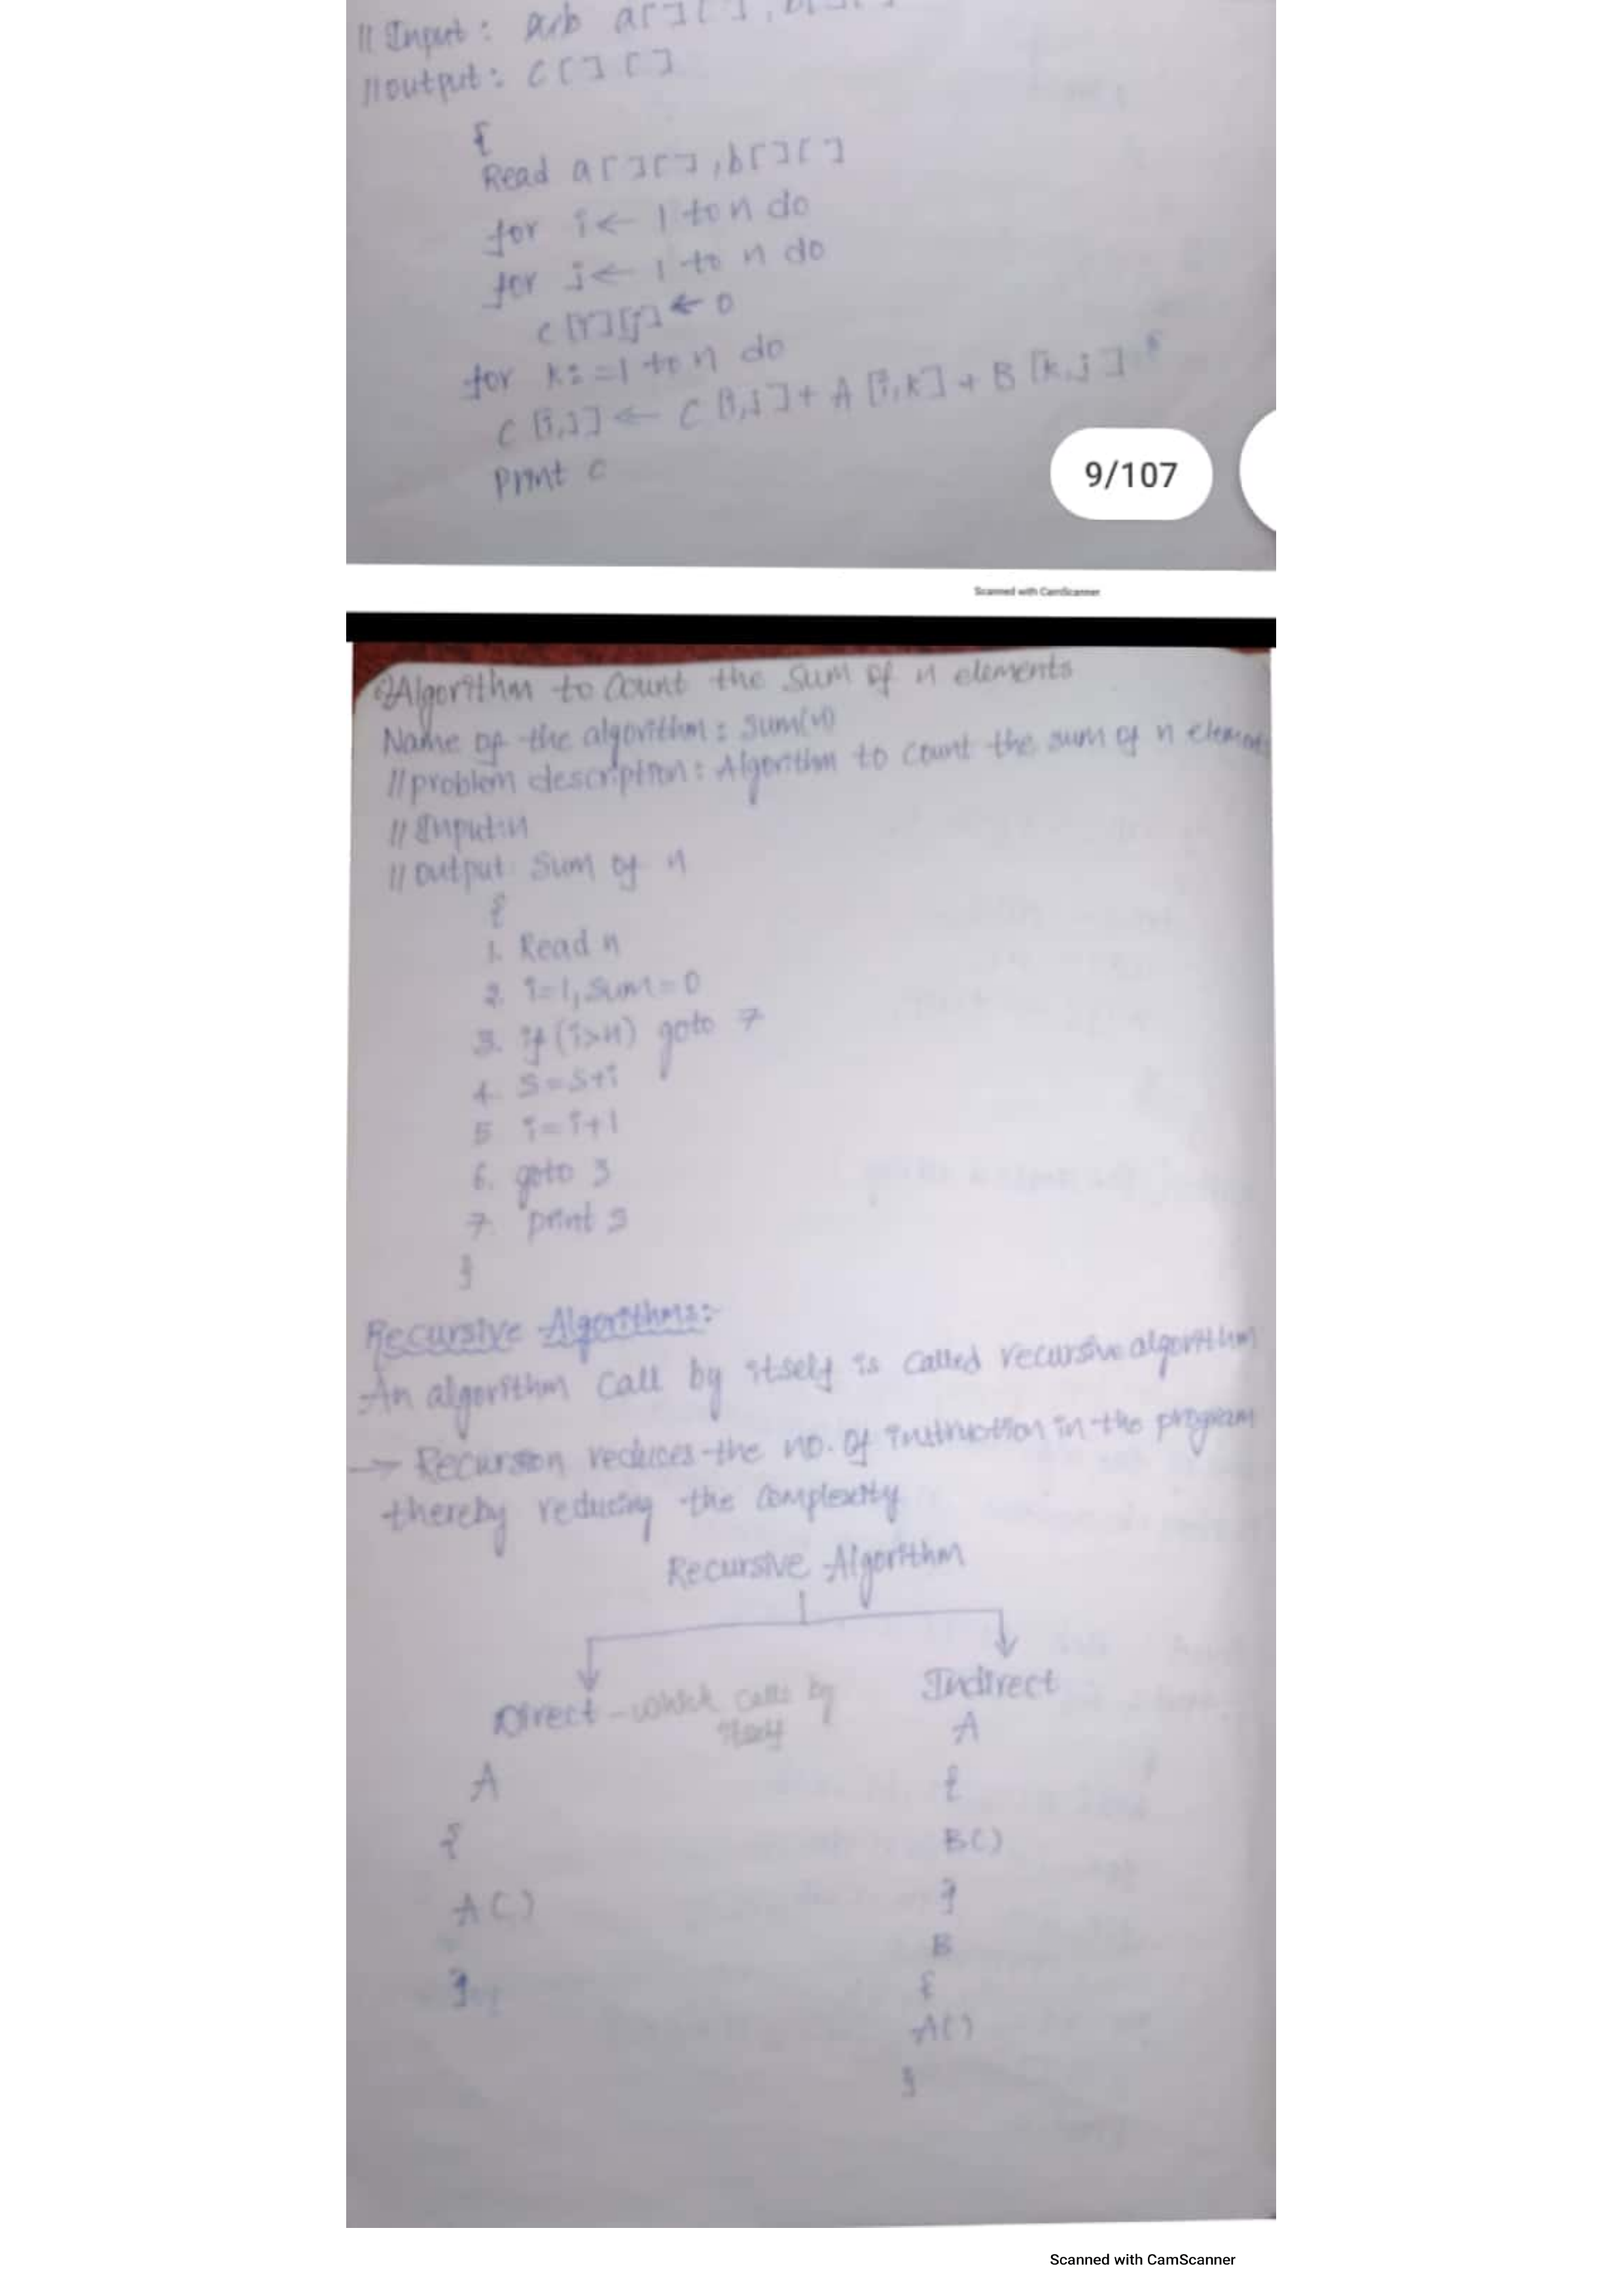 // Input : a,b a[][], b[][]
// output : C[][]
{
Read a[][], b[][]
for i ← 1 to n do
for j ← 1 to n do
c[i][j] ← 0
for k:=1 to n do
C[i,j] ← C[i,j] + A[i,k] * B[k,j]
Print C
9/107
Scanned with CamScanner
Algorithm to Count the Sum of n elements
Name of the algorithm : Sum(n)
// problem description : Algorithm to count the sum of n element
// Input: n
// output: Sum of n
{
1. Read n
2. i=1, Sum=0
3. if (i>n) goto 7
4. S=S+i
5 i=i+1
6. goto 3
7. print S
}
Recursive Algorithms:-
An algorithm call by itself is called recursive algorithm
→ Recursion reduces the no. of instruction in the program
thereby reducing the complexity
Recursive Algorithm
Direct - which calls by itself
Indirect
A
{
A()
}
A
{
B()
}
B
{
A()
}
Scanned with CamScanner